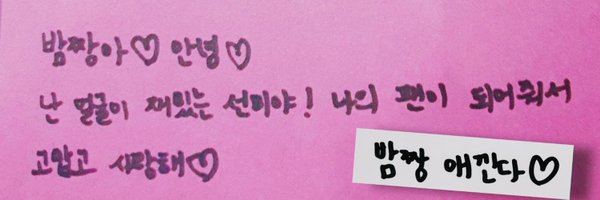 밤짱아♡ 안녕♡
난 얼굴이 재밌는 선미야! 나의 팬이 되어줘서
고맙고 사랑해♡
밤짱 애낀다♡